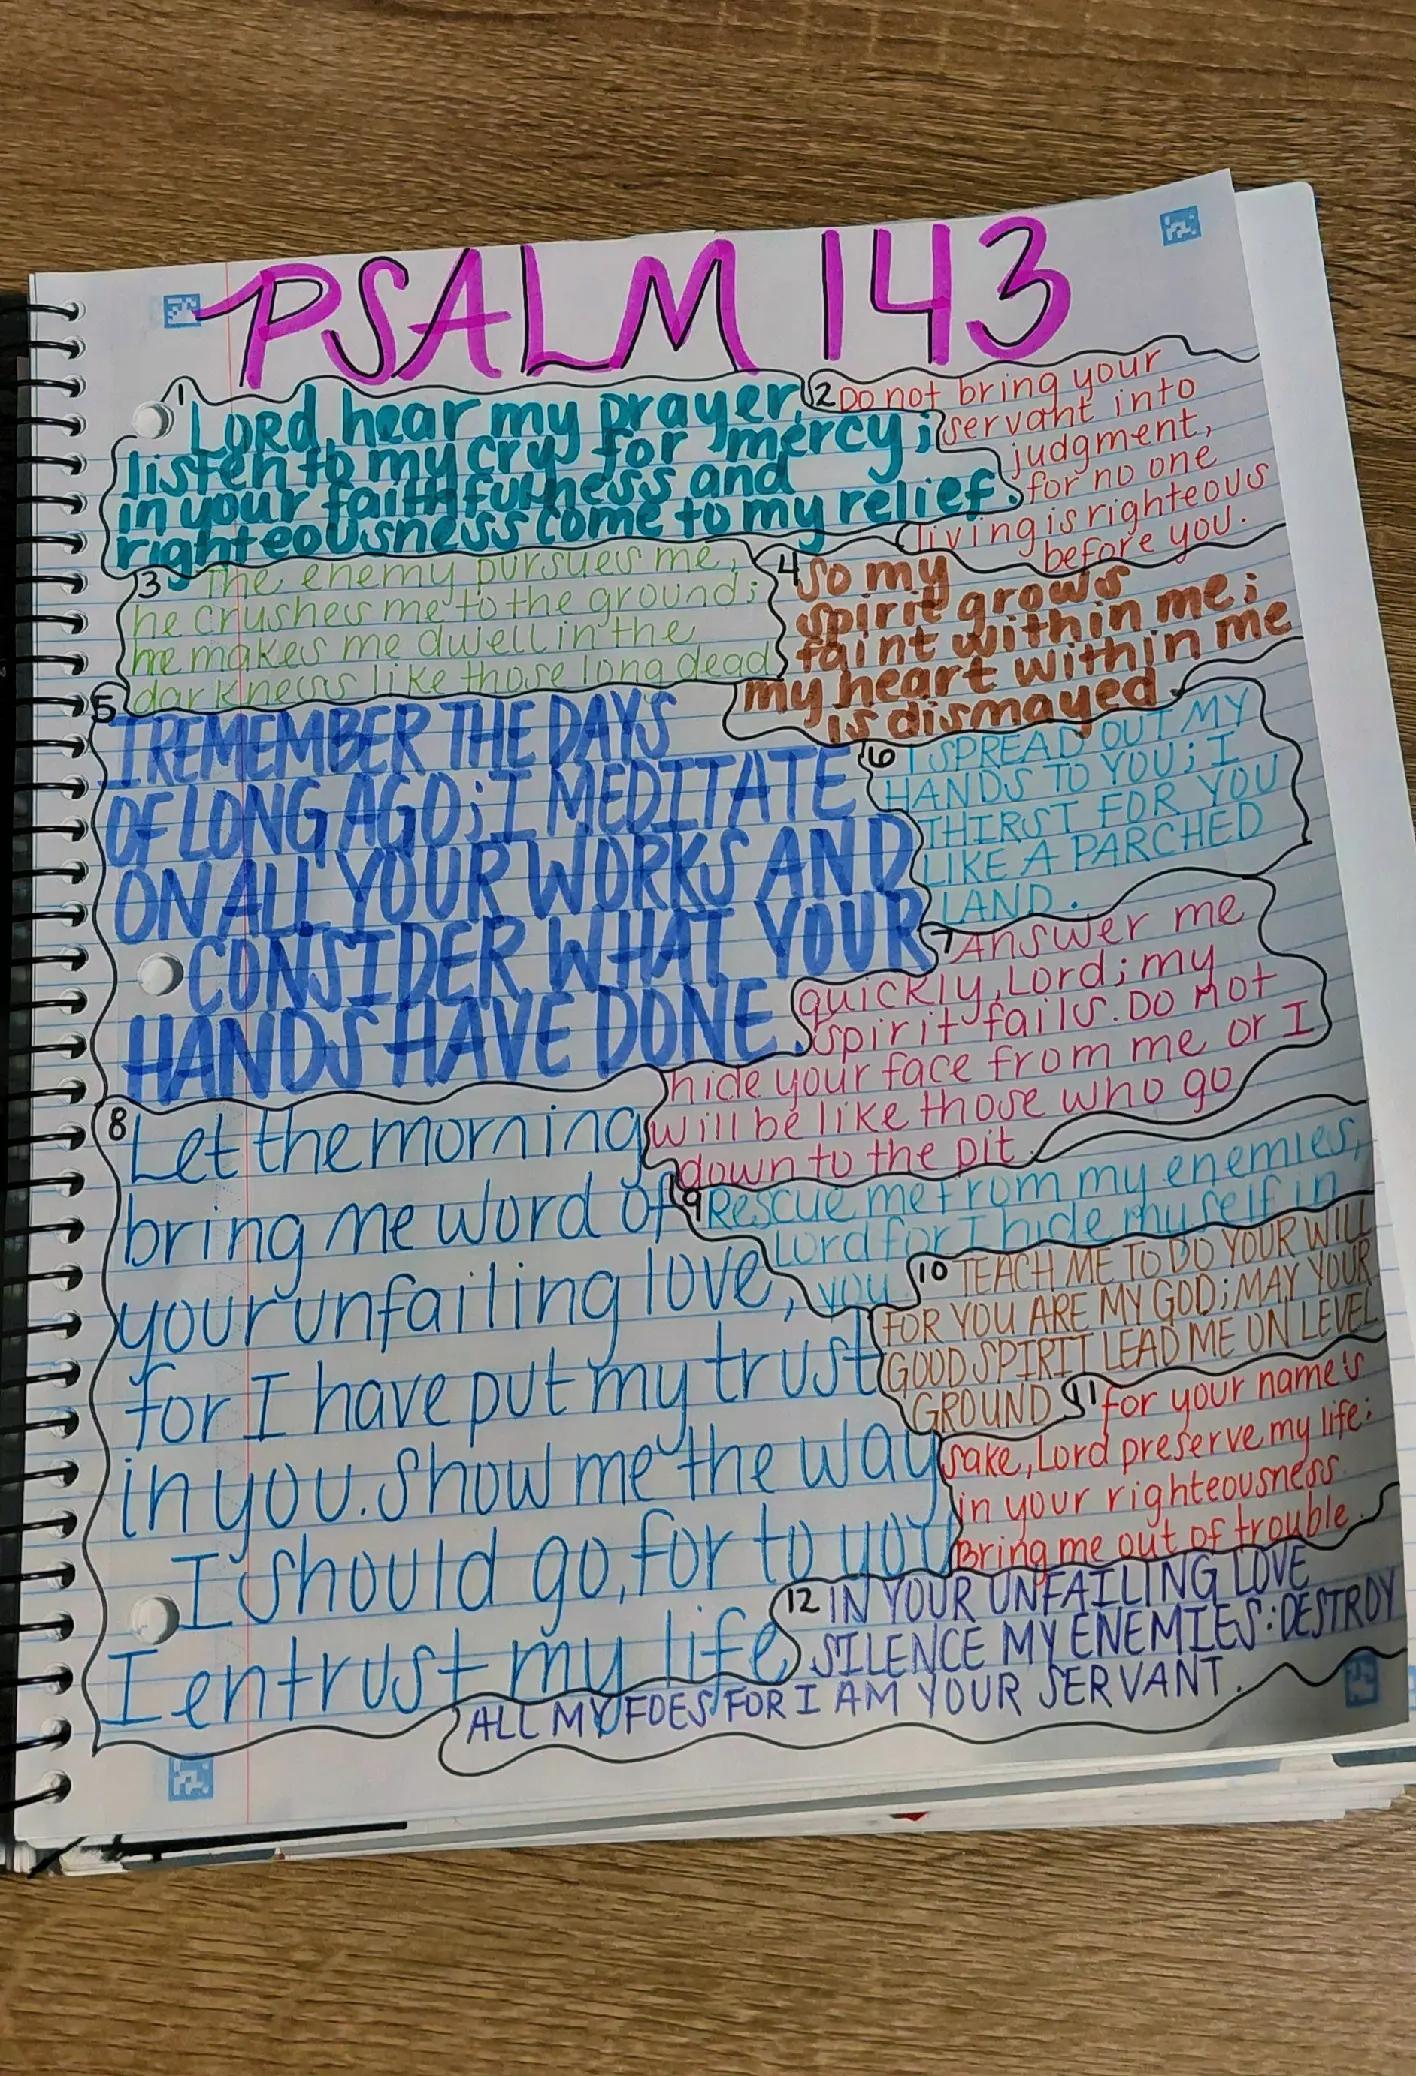 PSALM 143
1 Lord, hear my prayer,
listen to my cry for mercy;
in your faithfulness and
righteousness come to my relief.
2 Do not bring your
servant into
judgment,
for no one
living is righteous
before you.
3 The enemy pursues me,
he crushes me to the ground;
he makes me dwell in the
darkness like those long dead
4 So my
spirit grows
faint within me;
my heart within me
is dismayed.
5 I REMEMBER THE DAYS
OF LONG AGO; I MEDITATE
ON ALL YOUR WORKS AND
CONSIDER WHAT YOUR
HANDS HAVE DONE.
6 I SPREAD OUT MY
HANDS TO YOU; I
THIRST FOR YOU
LIKE A PARCHED
LAND.
7 Answer me
quickly, Lord; my
spirit fails. Do not
hide your face from me or I
will be like those who go
down to the pit.
8 Let the morning
bring me word of
your unfailing love,
for I have put my trust
in you. Show me the way
I should go, for to you
I entrust my life
9 Rescue me from my enemies,
Lord for I hide myself in
you
10 TEACH ME TO DO YOUR WILL
FOR YOU ARE MY GOD; MAY YOUR
GOOD SPIRIT LEAD ME ON LEVEL
GROUND
11 for your name's
sake, Lord preserve my life;
in your righteousness
bring me out of trouble.
12 IN YOUR UNFAILING LOVE
SILENCE MY ENEMIES: DESTROY
ALL MY FOES FOR I AM YOUR SERVANT.